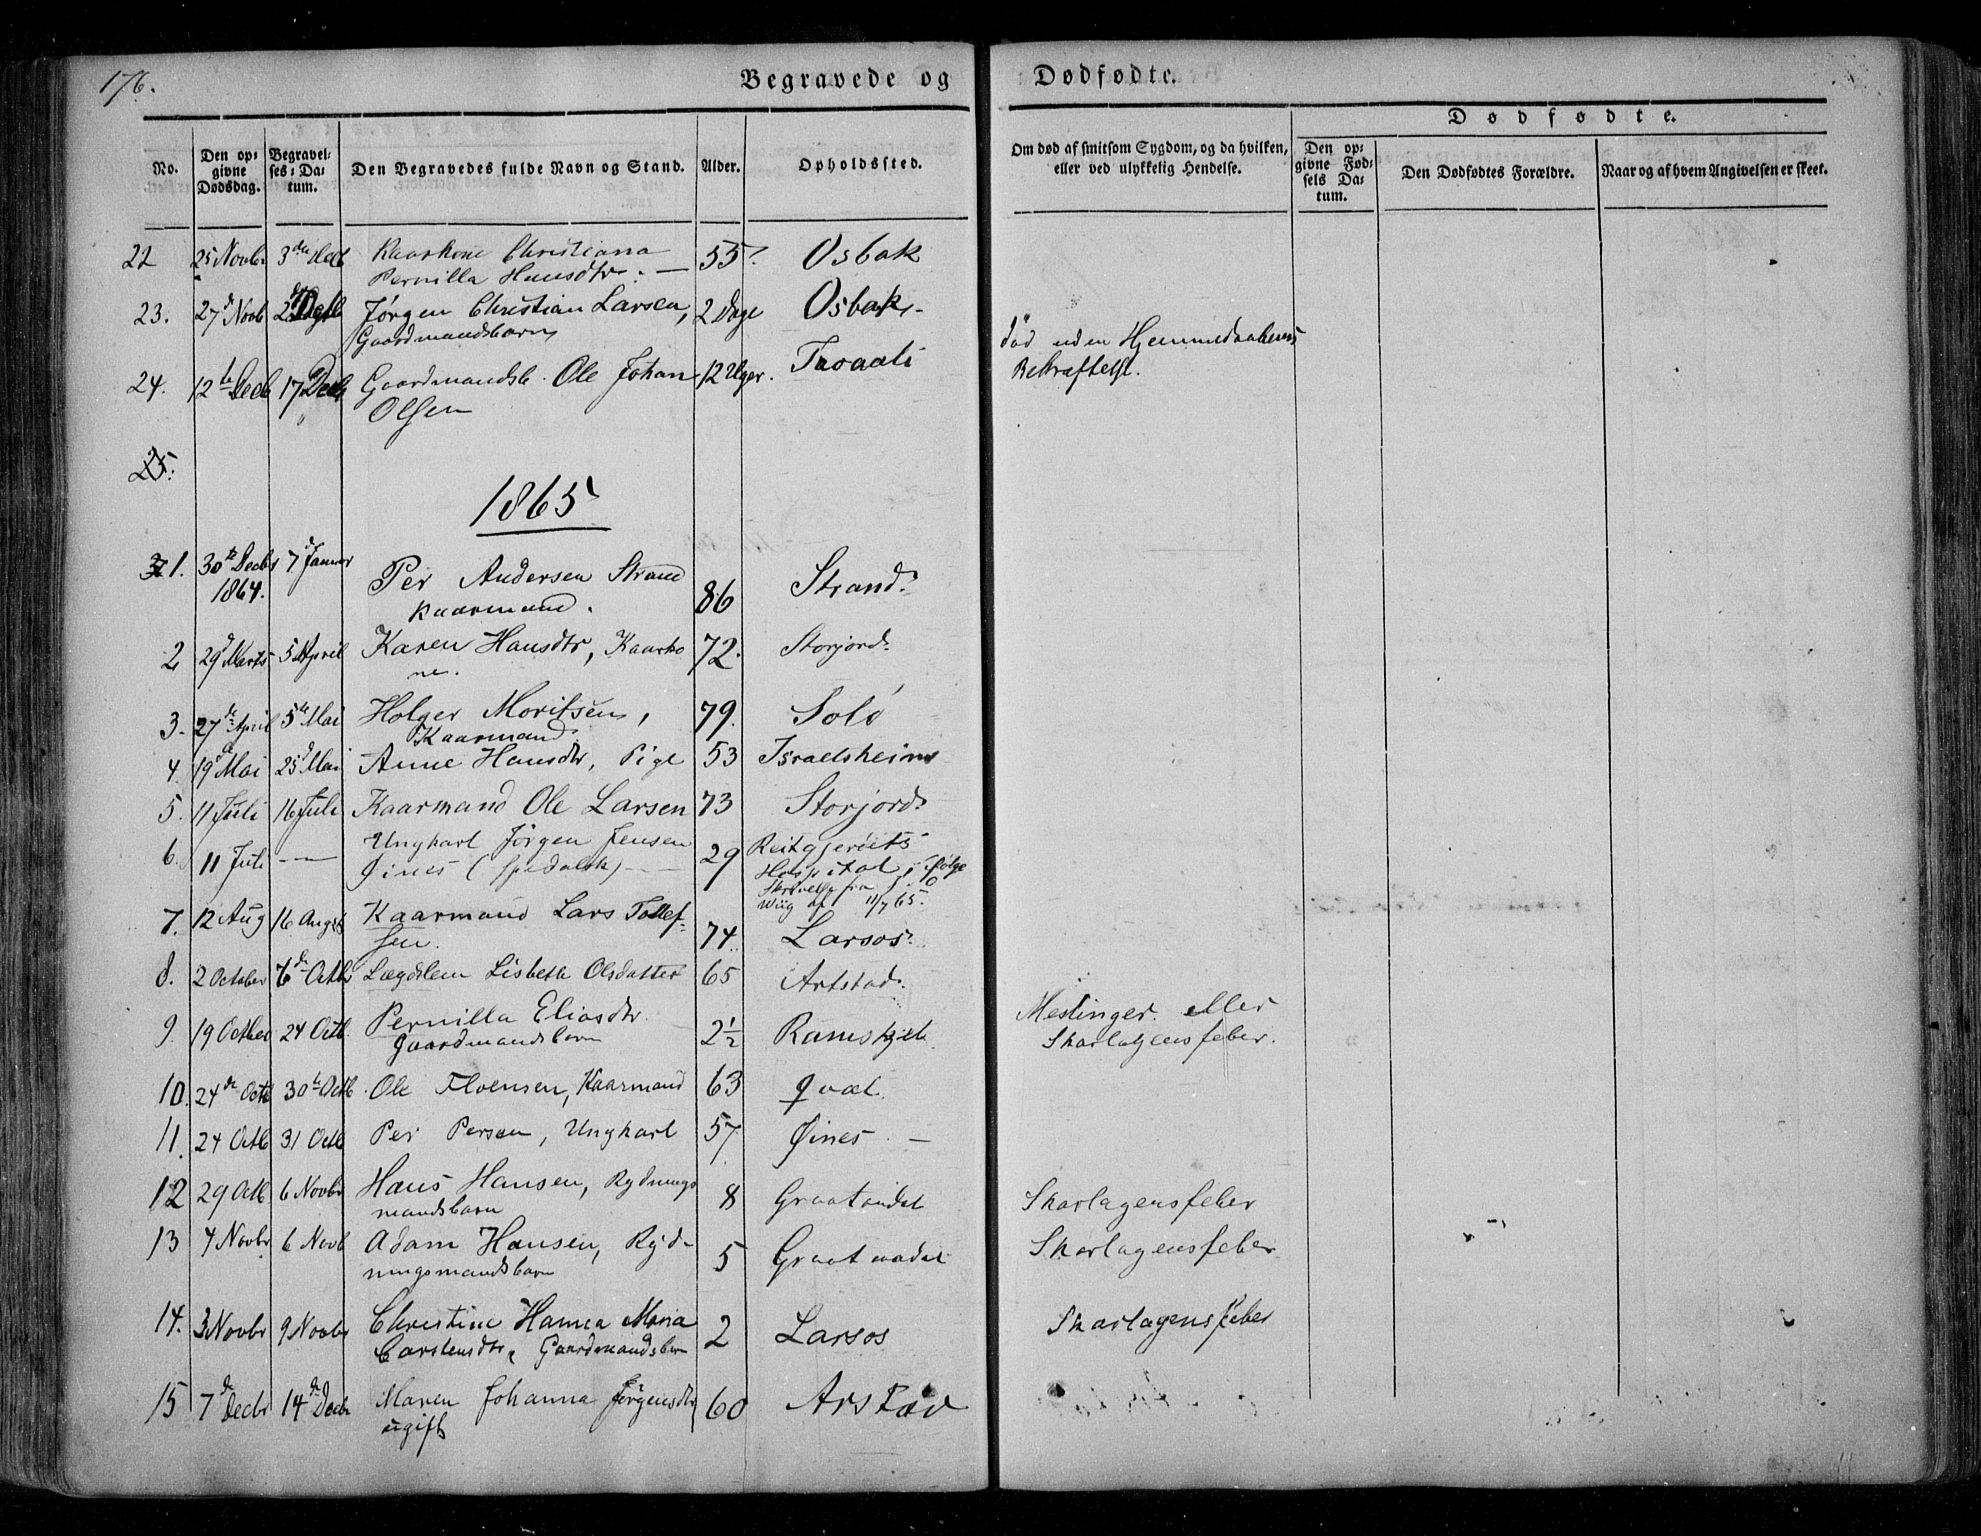 176.
Begravede og Dødfødte.
Dødfødte.
No.
Den op-
givne
Dødsdag.
Begravel-
ses-Da-
tum.
Den Begravedes fulde Navn og Stand.
Alder.
Opholdssted.
Om død af smitsom Sygdom, og da hvilken,
eller ved ulykkelig Hendelse.
Den op-
givne Fød-
sels Da-
tum.
Den Dødfødtes Forældre.
Naar og af hvem Angivelsen er skeet.
22 25 Novbr 3die Decb Kaarkone Christiana 55. Osbak
Pernilla Hansdtr. —
23. 27d Novb Jørgen Christian Larsen, 2 Dage Osbak
Gaardmandsbarn
død uden Hjemmedaabens
24. 12te Decb 17 Decb Gaardmandsb. Ole Johan 12 Uger.
Bekræftelse.
Olsen
25.
1865
1. 30te Decbr 7d Januar Per Andersen Strand 86 Strand
1864. Kaarmand.
2 29d Marts 5 April Karen Hansdtr, Kaarko 72. Storjord
ne.
3. 27de April 5te Mai Holger Moritsen, 79. Solø
Kaarmand
4 19d Mai 25d Mai Anne Hansdtr, Pige 53 Israelsheim
5. 11 Juli 16 Juli Kaarmand Ole Larsen 73 Storjord
6. 11 Juli — Ungkarl Jørgen Jensen 29 Reitgjerdets
Øines (spedalsk) — Hospital, ifølge
Skrivelse fra
Wiig af 11/7 65.
7. 12 Aug 16 Augst Kaarmand Lars Tollef-
sen. 74. Larsos
8. 2 October 6d Octbr Lægdslem Lisbeth Olsdatter 65 Arstad
9. 19 Octbr 24 Octb Pernilla Eliasdtr 2½ Ramskjel Meslinger eller
Gaardmandsbarn Skarlagensfeber.
10. 24de Octb 30te Octb Ole Floensen, Kaarmand 63 Qval
11. 24 Octb 31 Octb Per Persen, Ungkarl 57 Øines —
12 29 Octb 6 Novbr Hans Hansen, Rydnings 8 Graataadal Skarlagensfeber
mandsbarn
13 4 Novbr 6 Novb Adam Hansen, Ryd- 5 Graataadal Skarlagensfeber
ningsmandsbarn
14. 3 Novbr 9 Novbr Christine Hanna Maria 2 Larsos Skarlagensfeber
Carstensdtr, Gaardmandsbarn
15 7de Decbr 14de Decbr Maren Johanna Jørgensdtr 60 Arstad
ugift